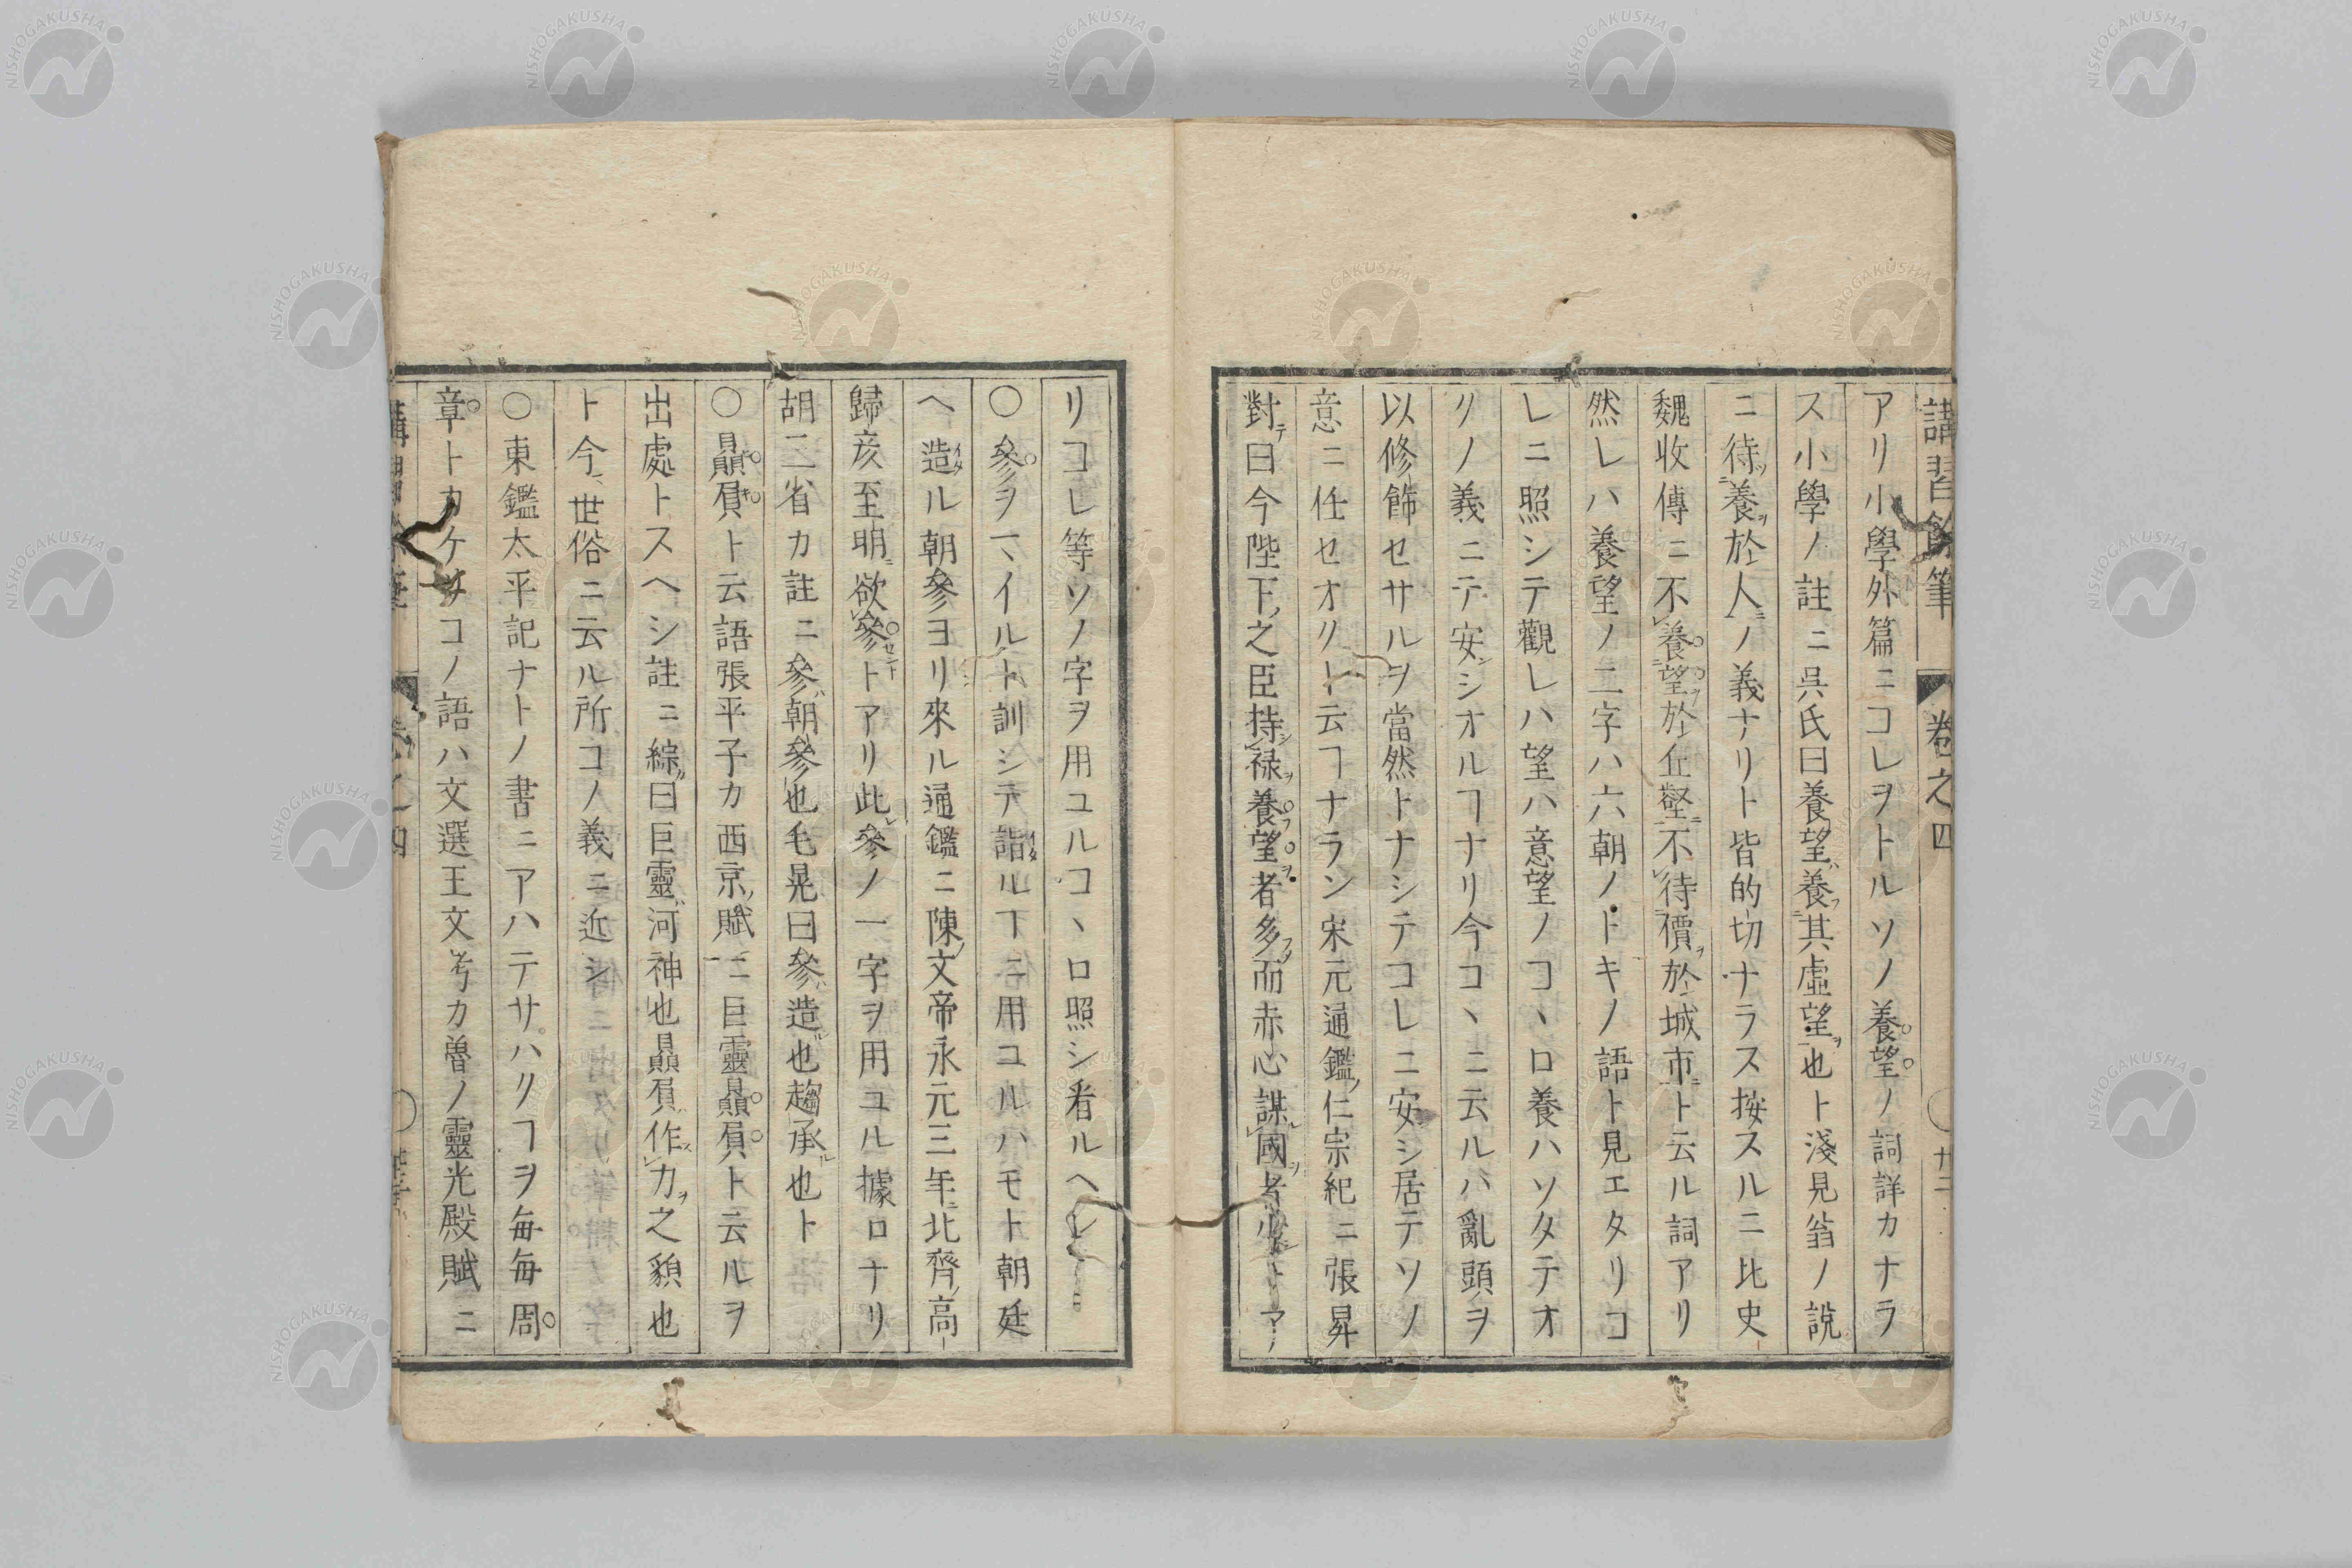 講習餘筆 卷之四 廿二
アリ小學外篇ニコレヲトルソノ養望ノ詞詳カナラ
ス小學ノ註ニ吳氏曰養望養其虛望也ト淺見翁ノ說
ニ待養於人ノ義ナリト皆的切ナラス按スルニ北史
魏收傳ニ不養望於丘壑不待價於城市ト云ル詞アリ
然レハ養望ノ二字ハ六朝ノトキノ語ト見エタリコ
レニ照シテ觀レハ望ハ意望ノコヽロ養ハソタテオ
クノ義ニテ安シオルヿナリ今コヽニ云ルハ亂頭ヲ
以修飾セサルヲ當然トナシテコレニ安シ居テソノ
意ニ任セオクト云ヿナラン宋元通鑑仁宗紀ニ張昇
對曰今陛下之臣持祿養望者多而赤心謀國者少トア
リコレ等ソノ字ヲ用ユルコヽロ照シ看ルヘシ
○參ヲマイルト訓シテ詣ル下ニ用ユルハモト朝廷
ヘ造ル朝參ヨリ來ル通鑑ニ陳文帝永元三年北齊高
歸彦至明欲參トアリ此參ノ一字ヲ用ユル據ロナリ
胡三省カ註ニ參朝參也毛晃曰參造也趨承也ト
○贔屓ト云語張平子カ西京賦ニ巨靈贔屓ト云ルヲ
出處トスヘシ註ニ綜曰巨靈河神也贔屓作力之貌也
ト今世俗ニ云ル所コノ義ニ近シ
○東鑑太平記ナトノ書ニアハテサハクヿヲ每每周
章トカケリコノ語ハ文選王文考カ魯ノ靈光殿賦ニ
卷之四